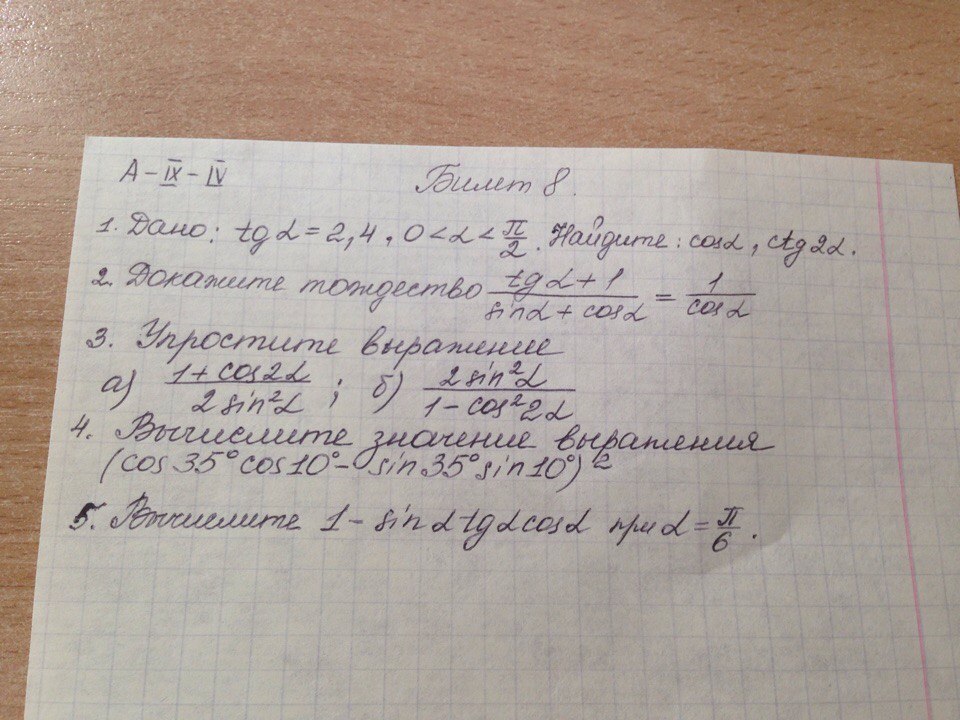 А-IX-IV
Билет 8.
1. Дано: tgα = 2,4, 0 < α < π/2. Найдите: cosα, ctg2α.
2. Докажите тождество (tgα + 1)/(sinα + cosα) = 1/cosα
3. Упростите выражение
а) (1 + cos2α)/(2 sin²α) ; б) (2 sin²α)/(1 - cos²2α)
4. Вычислите значение выражения
(cos 35° cos 10° - sin 35° sin 10°)²
5. Вычислите 1 - sinα tgα cosα при α = π/6.